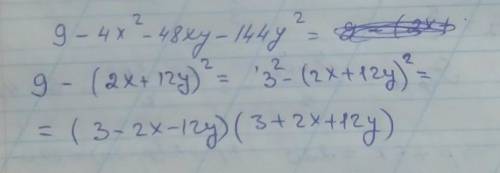 9 - 4x² - 48xy - 144y² =
9 - (2x + 12y)² = 3² - (2x + 12y)² =
= (3 - 2x - 12y)(3 + 2x + 12y)